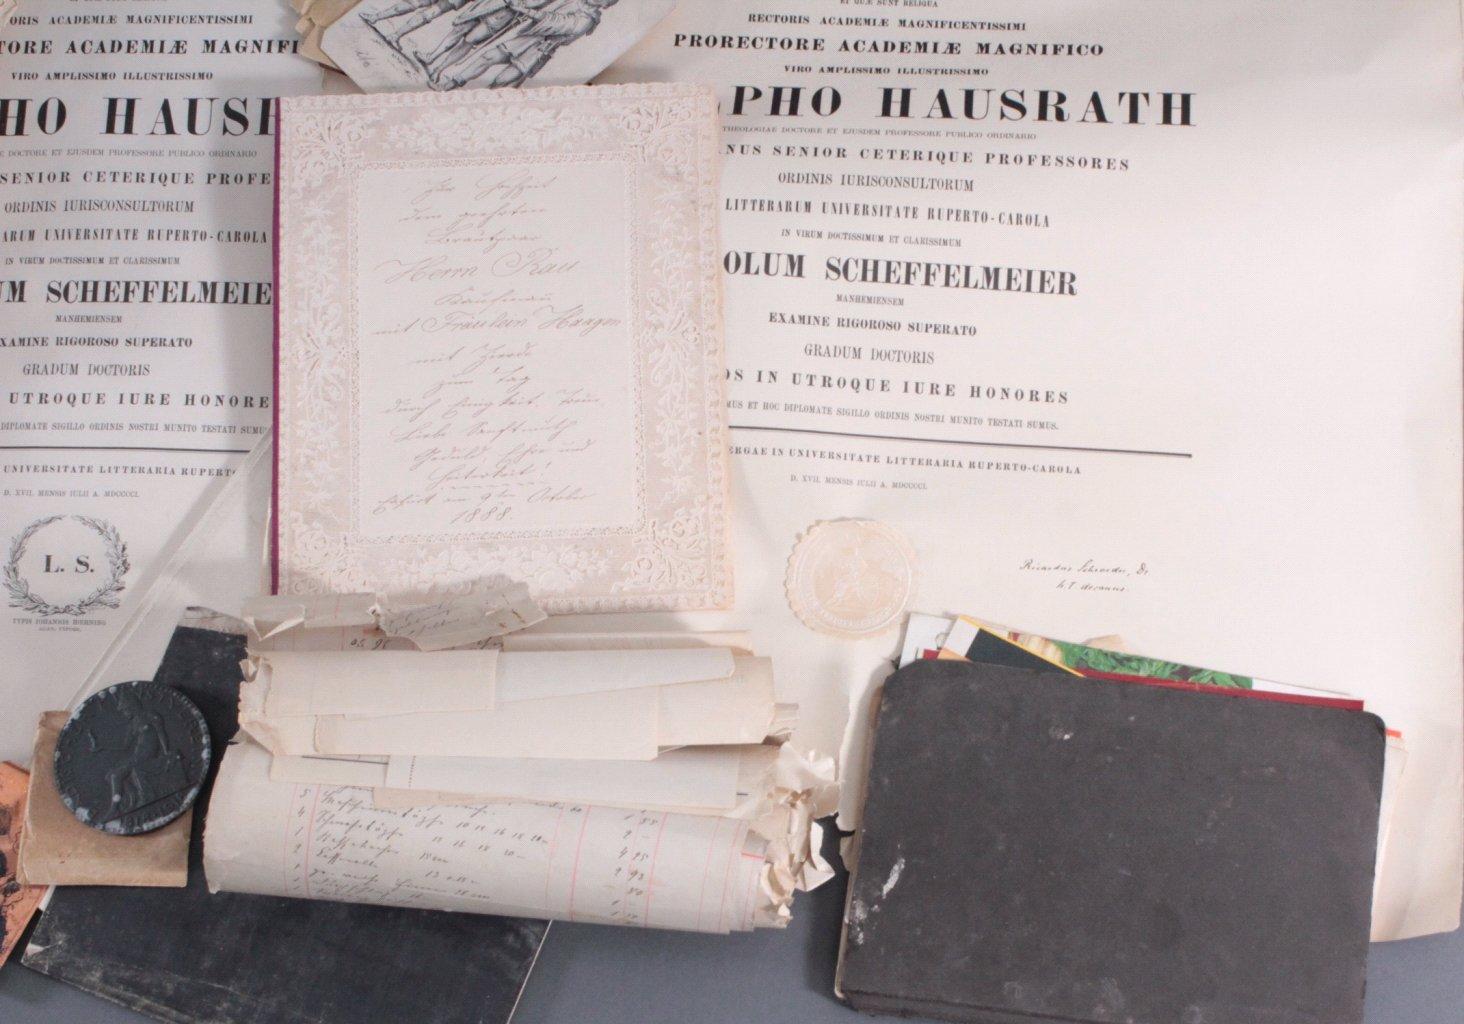 ORIS ACADEMIÆ MAGNIFICENTISSIMI
TORE ACADEMIÆ MAGNIFI
VIRO AMPLISSIMO ILLUSTRISSIMO
HO HAUSR
E DOCTORE ET EJUSDEM PROFESSORE PUBLICO ORDINARIO
SENIOR CETERIQUE PROFE
ORDINIS IURISCONSULTORUM
ARUM UNIVERSITATE RUPERTO-CAROLA
IN VIRUM DOCTISSIMUM ET CLARISSIMUM
UM SCHEFFELMEIE
MANHEMIENSEM
XAMINE RIGOROSO SUPERATO
GRADUM DOCTORIS
UTROQUE IURE HONORE
DIPLOMATE SIGILLO ORDINIS NOSTRI MUNITO TESTATI SUMUS
UNIVERSITATE LITTERARIA RUPERTO
D. XVII. MENSIS IULII A. MDCCCCI.
L. S.
TYPIS IOHANNIS HOERNING
ET QUÆ SUNT RELIQUA
RECTORIS ACADEMIÆ MAGNIFICENTISSIMI
PRORECTORE ACADEMIÆ MAGNIFICO
VIRO AMPLISSIMO ILLUSTRISSIMO
PHO HAUSRATH
THEOLOGIAE DOCTORE ET EJUSDEM PROFESSORE PUBLICO ORDINARIO
NUS SENIOR CETERIQUE PROFESSORES
ORDINIS IURISCONSULTORUM
LITTERARUM UNIVERSITATE RUPERTO-CAROLA
IN VIRUM DOCTISSIMUM ET CLARISSIMUM
OLUM SCHEFFELMEIER
MANHEMIENSEM
EXAMINE RIGOROSO SUPERATO
GRADUM DOCTORIS
OS IN UTROQUE IURE HONORES
MUS ET HOC DIPLOMATE SIGILLO ORDINIS NOSTRI MUNITO TESTATI SUMUS.
ERGAE IN UNIVERSITATE LITTERARIA RUPERTO-CAROLA
D. XVII. MENSIS IULII A. MDCCCCI.
Ricardus Schroeder, Dr
h. t. decanus.
Zur Hochzeit
dem geehrten
Brautpaar
Herrn Rau
Kaufmann
mit Fräulein Haagen
zum Tag
durch Einigkeit, Treue,
Liebe Sanftmuth
Geduld
und
Heiterkeit!
Erfurt am 9ten October
1888.